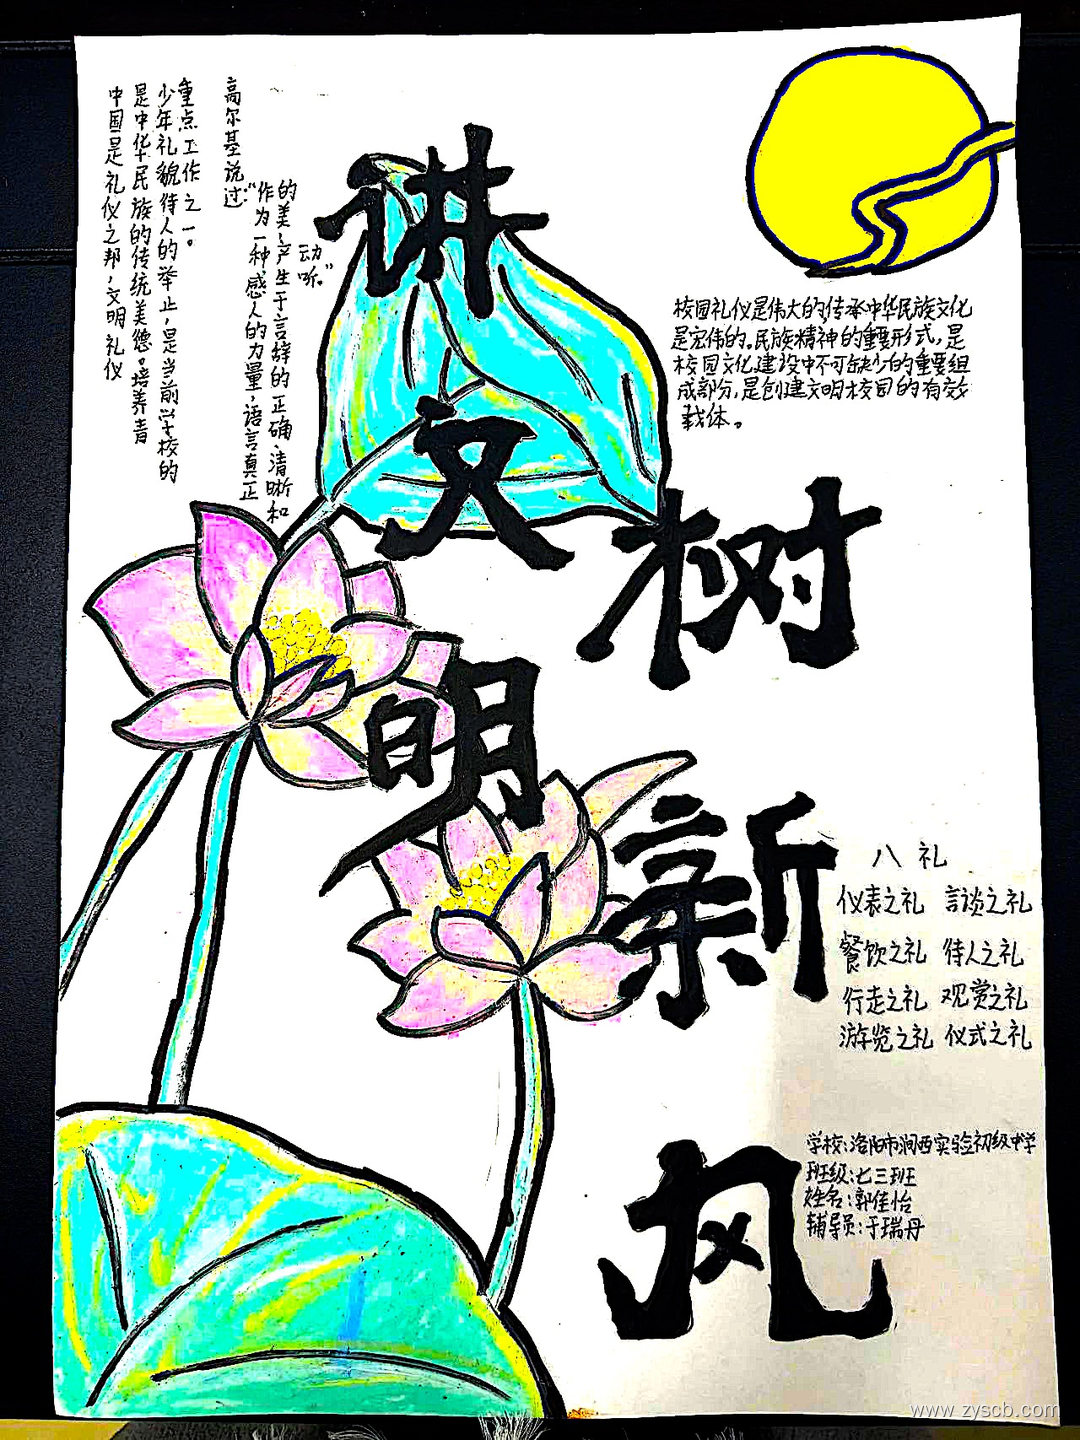 讲文明
树新风
中国是礼仪之邦，文明礼仪
是中华民族的传统美德。培养青
少年礼貌待人的举止，是当前学校的
重点工作之一。
高尔基说过：
“作为一种感人的力量，语言真正
的美，产生于言辞的正确、清晰和
动听。”
校园礼仪是伟大的传承中华民族文化
是宏伟的。民族精神的重要形式，是
校园文化建设中不可缺少的重要组
成部分，是创建文明校园的有效
载体。
八 礼
仪表之礼 言谈之礼
餐饮之礼 待人之礼
行走之礼 观赏之礼
游览之礼 仪式之礼
学校：洛阳市涧西实验初级中学
班级：七三班
姓名：郭佳怡
辅导员：于瑞丹
www.zyscb.com